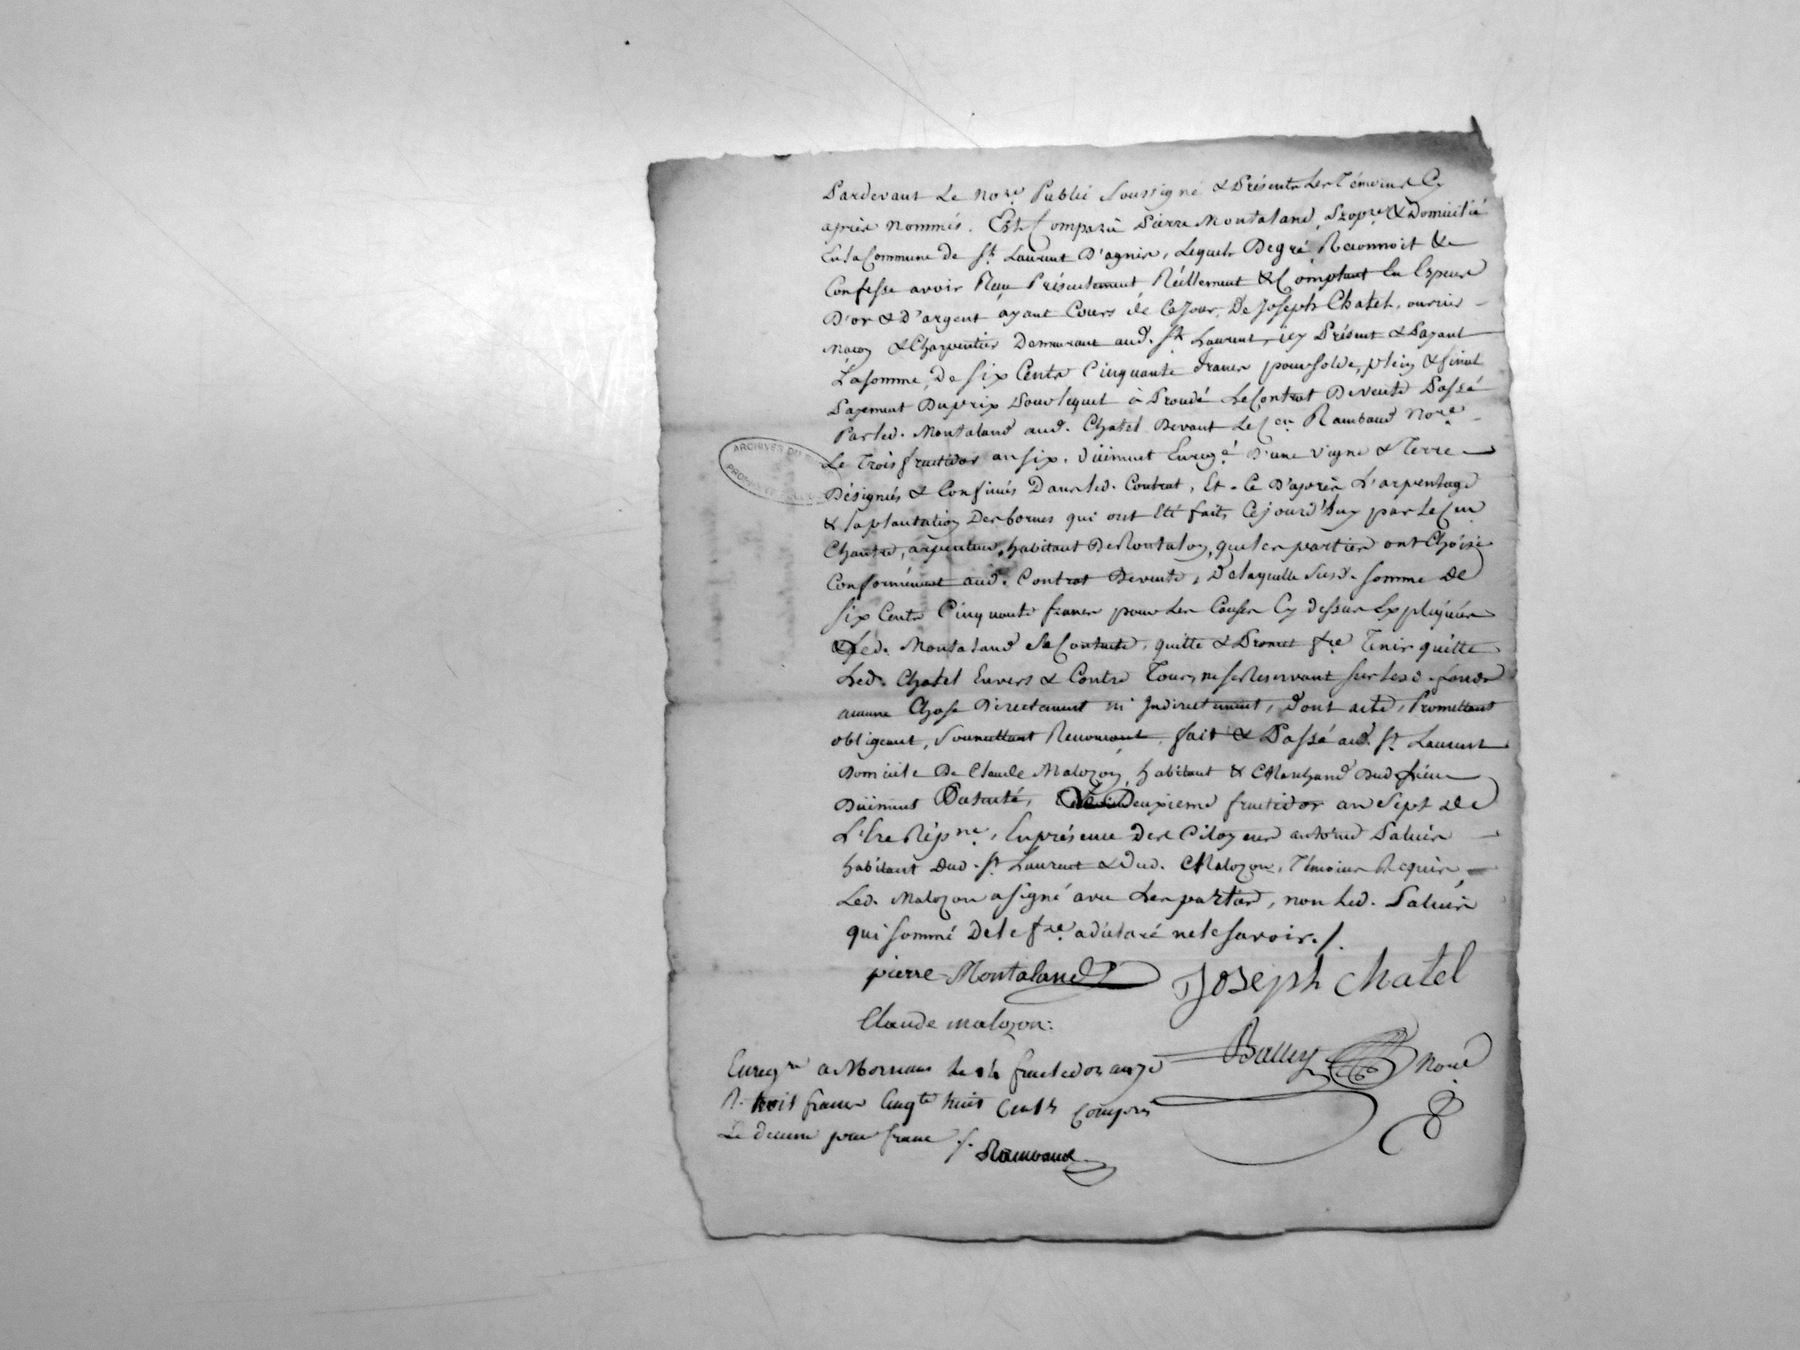 Pardevant Le Nore. Public Soussigné & Présents Les Témoins Cy
après Nommés. Est Comparû Pierre Montaland, Propre. & Domicilié
En la Commune de St. Laurent D'agnis, Lequel De gré, Reconnoit &
Confesse avoir Reçu Présentement, Réellement & Comptant En Especes
D'or & D'argent ayant Cours de Ce Jour, De Joseph Chatel, ouvrier
Maçon & Charpentier Demeurant aud. St. Laurent, icy Présent & Payant
La somme, De six Cents Cinquante francs pour solde, plein & final
Payement Du prix Pour lequel à Procédé Le Contrat De vente Passé
Par Led. Montaland aud. Chatel Devant Le Cen. Rambaud Nore.
Le Trois fructidor an six, Düement Enregé. D'une vigne & Terre
Désignés & Confinés Dans Led. Contrat, Et Ce D'après L'arpentage
& la plantation Des bornes qui ont Eté faits Cejourd'huy par Le Cen
Chantre, arpenteur, habitant De Rontalon, que les parties ont Choisi
Conformément aud. Contrat De vente, De laquelle Susd. somme De
Six Cents Cinquante francs pour Les Causes Cy dessus Expliquées
Led. Montaland Se Contente, quitte & Promet fre Tenir quitte
Led. Chatel Envers & Contre Tous, ne se Reservant sur lesd. fonds
aucune Chose Directement ni Indirectement, Dont acte, Promettant
obligeant, Soumettant Renonçant, fait & Passé aud. St. Laurent
Domicile De Claude Malozon, habitant & Marchand Dud. Lieu
Düement Patenté, Le Deuxieme fructidor an Sept De
L'Ere Répne. En présence Des Citoyens antoine Paluis
habitant Dud. St. Laurent & Dud. Malozon, Témoins Requis,
Led. Malozon a signé avec Les parties, non Led. Paluis
qui sommé De le fre. a déclaré ne le savoir./.
pierre Montaland Joseph chatel
Claude malozon:
Bally Nore
Enregré a Mornant le 14 fructidor an 7e
R. trois francs Cinqte huit Cents Compris
Le décime pour franc /.
Rambaud